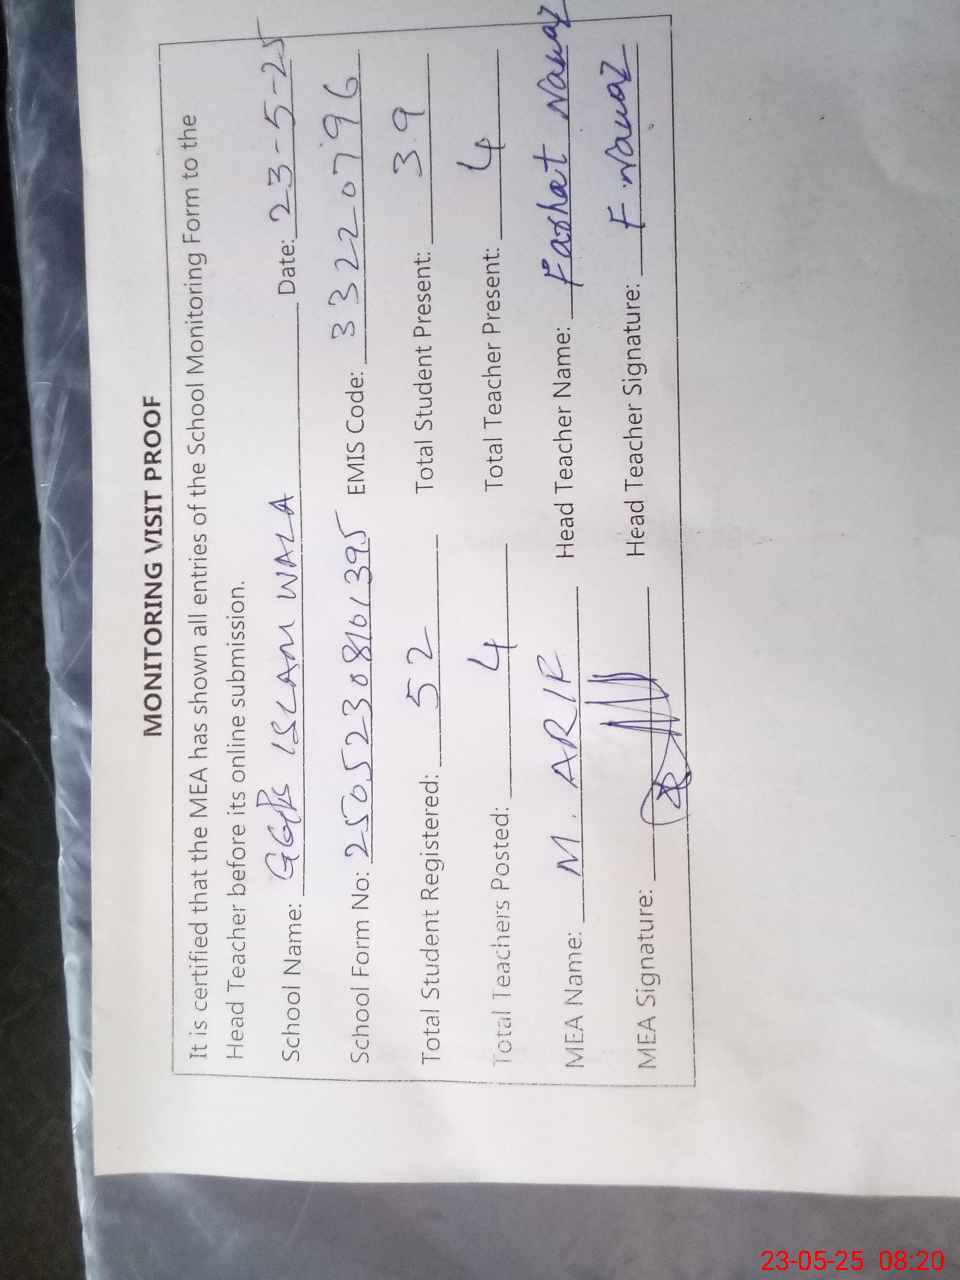 MONITORING VISIT PROOF
It is certified that the MEA has shown all entries of the School Monitoring Form to the
Head Teacher before its online submission.
School Name: GGPS ISLAM WALA Date: 23-5-25
School Form No: 25052308101395 EMIS Code: 33220796
Total Student Registered: 52 Total Student Present: 39
Total Teachers Posted: 4 Total Teacher Present: 4
MEA Name: M. ARIF Head Teacher Name: Farhat Nawaz
MEA Signature: Head Teacher Signature: F. Nawaz
23-05-25 08:20